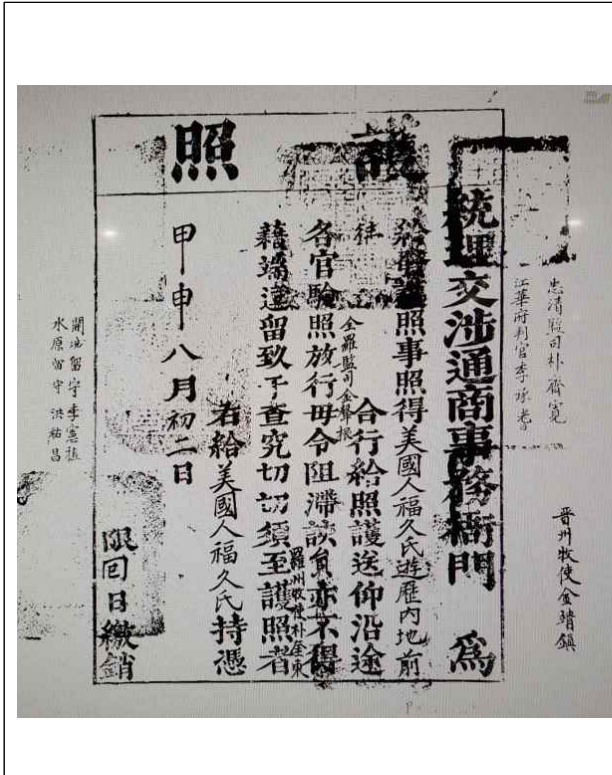 護照
晉州牧使金靖鎭
忠清監司朴齊寬
江華府判官李
統理交涉通商事務衙門 為
給發護照事照得美國人福久氏遊歷内地前
往 合行給照護送仰沿途
全羅監司金聲根
各官驗照放行毋令阻滯該員亦不得
羅州牧使朴奎東
藉端逗留致于查究切切須至護照者
右給美國人福久氏持憑
甲申八月初二日
限回日繳銷
開城留守李憲稙
水原留守 洪祐昌